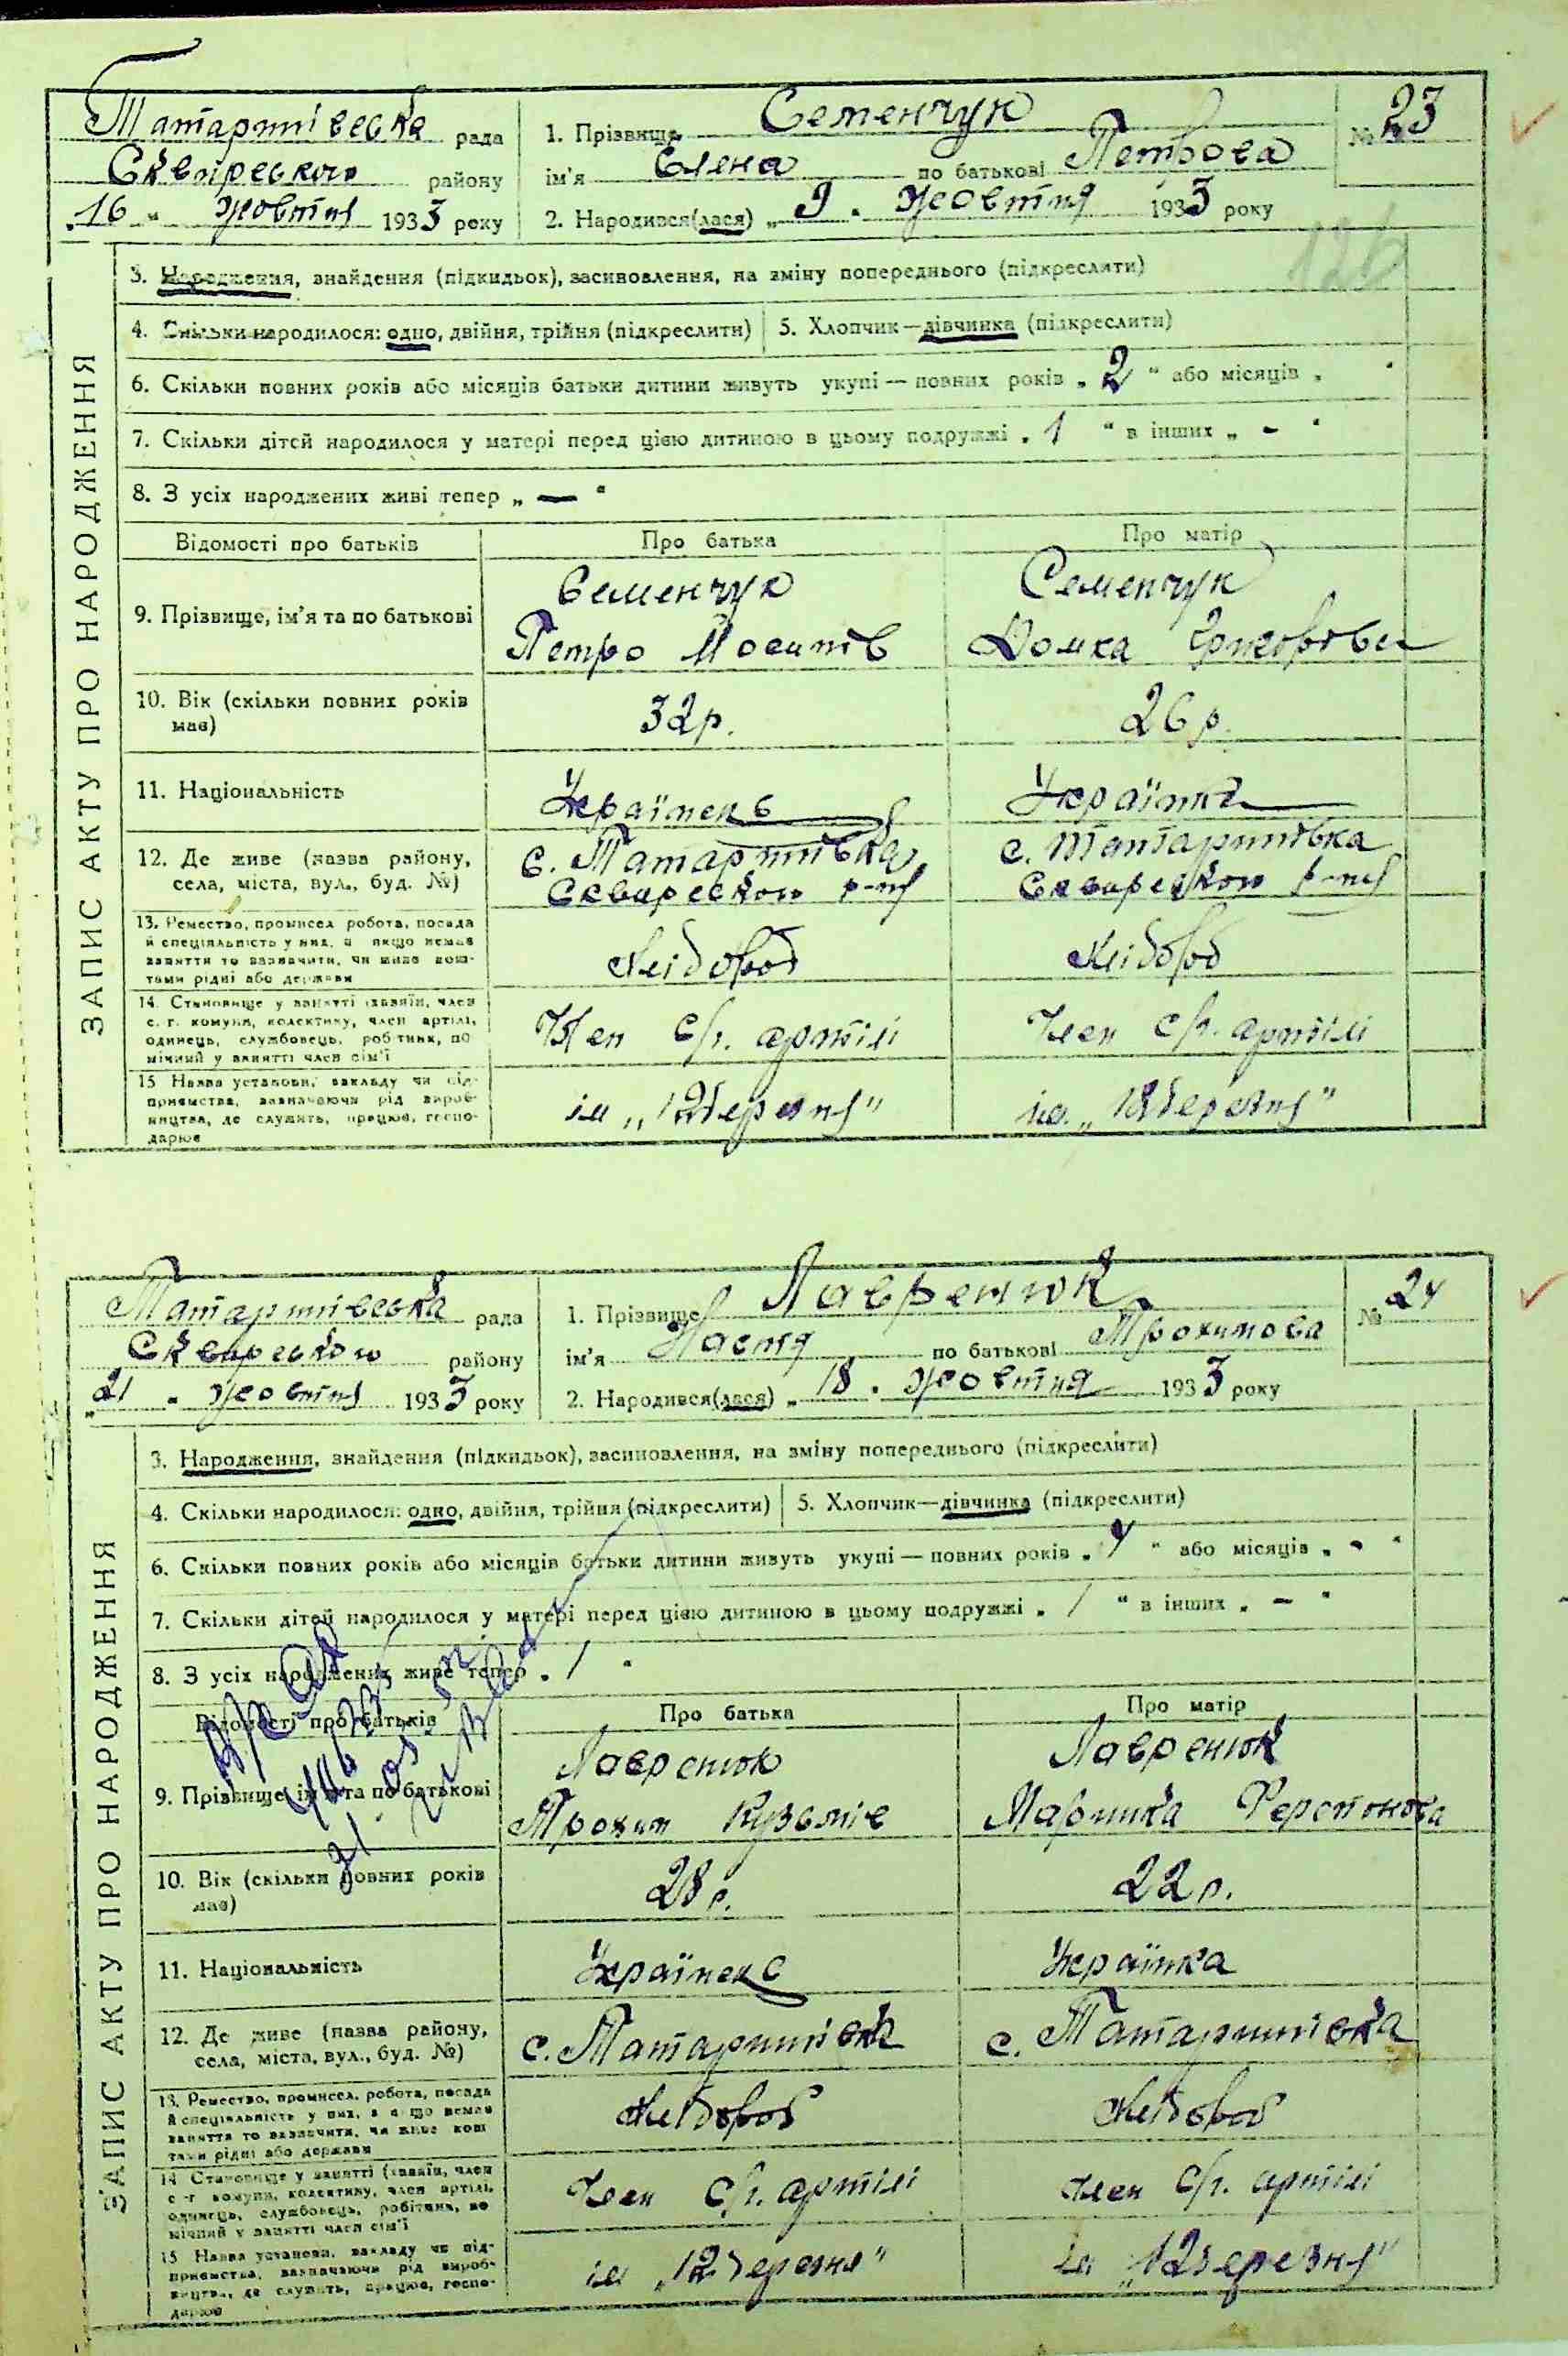 Татаринівська рада
Сквирського району
„16“ жовтня 1933 року
1. Прізвище Семенчук
ім'я Єлена по батькові Петрова
2. Народився(лася) „9“ жовтня 1933 року
№ 23
126
ЗАПИС АКТУ ПРО НАРОДЖЕННЯ
3. Народження, знайдення (підкидьок), засиновлення, на зміну попереднього (підкреслити)
4. Скільки народилося: одно, двійня, трійня (підкреслити) 5. Хлопчик—дівчинка (підкреслити)
6. Скільки повних років або місяців батьки дитини живуть укупі — повних років „2“ або місяців „ “
7. Скільки дітей народилося у матері перед цією дитиною в цьому подружжі „1“ в інших „-“
8. З усіх народжених живі тепер „—“
Відомості про батьків Про батька Про матір
9. Прізвище, ім'я та по батькові
Семенчук Семенчук
Петро Йосипів Домка
10. Вік (скільки повних років має) 32р. 26р.
11. Національність Українець Українка
12. Де живе (назва району, села, міста, вул., буд. №)
с. Татаринівка с. Татаринівка
Сквирського р-ну Сквирського р-ну
13. Ремество, промисел, робота, посада й спеціяльність у них, а якщо немає заняття то зазначити, чи живе коштами рідні або держави
Хлібороб Хлібороб
14. Становище у занятті (хазяїн, член с.-г. комуни, колективу, член артілі, одинець, службовець, робітник, помічний у занятті член сім'ї
Член с/г. артілі Член с/г. артілі
15 Назва установи, закладу чи підприємства, зазначаючи рід виробництва, де служить, працює, господарює
ім „12березня“ ім. „12березня“
Татаринівська рада
Сквирського району
„21“ жовтня 1933 року
1. Прізвище Лавренюк
ім'я Настя по батькові Трохимова
2. Народився(лася) „18“ жовтня 1933 року
№ 24
ЗАПИС АКТУ ПРО НАРОДЖЕННЯ
3. Народження, знайдення (підкидьок), засиновлення, на зміну попереднього (підкреслити)
4. Скільки народилося: одно, двійня, трійня (підкреслити) 5. Хлопчик—дівчинка (підкреслити)
6. Скільки повних років або місяців батьки дитини живуть укупі — повних років „4“ або місяців „-“
7. Скільки дітей народилося у матері перед цією дитиною в цьому подружжі „1“ в інших „-“
8. З усіх народжених живе тепер „1“
Відомості про батьків Про батька Про матір
9. Прізвище, ім'я та по батькові
Лавренюк Лавренюк
Трохим Кузьмів Маринка
10. Вік (скільки повних років має) 28р. 22р.
11. Національність Українець Українка
12. Де живе (назва району, села, міста, вул., буд. №)
с. Татаринівка с. Татаринівка
13. Ремество, промисел, робота, посада й спеціяльність у них, а якщо немає заняття то зазначити, чи живе коштами рідні або держави
Хлібороб Хлібороб
14 Становище у занятті (хазяїн, член с.-г. комуни, колективу, член артілі, одинець, службовець, робітник, помічний у занятті член сім'ї
Член с/г. артілі член с/г. артілі
15 Назва установи, закладу чи підприємства, зазначаючи рід виробництва, де служить, працює, господарює
ім „12березня“ ім „12березня“